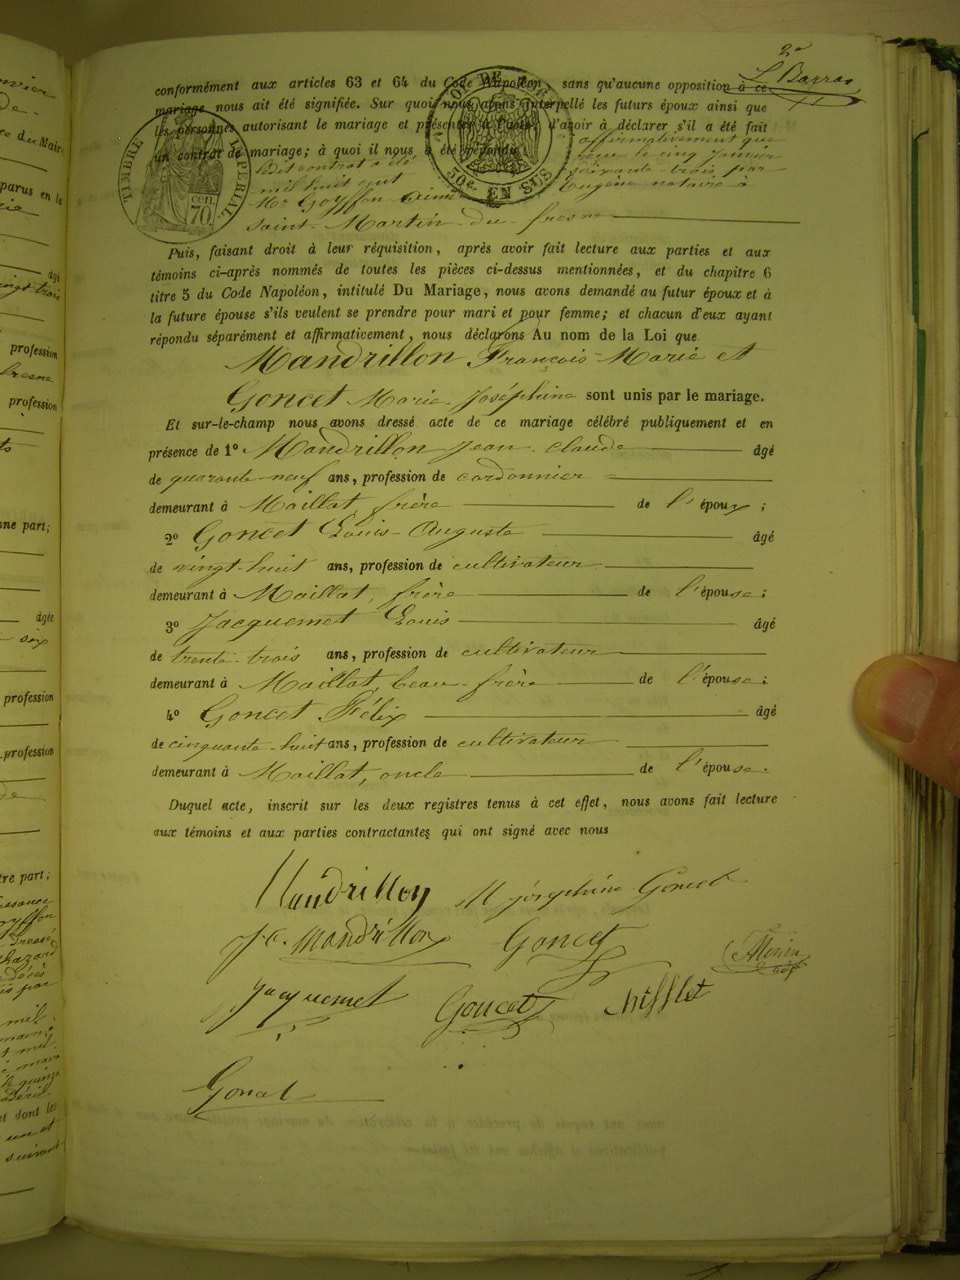 2e
L. Barras
conformément aux articles 63 et 64 du Code Napoléon, sans qu'aucune opposition à ce
mariage nous ait été signifiée. Sur quoi nous avons interpellé les futurs époux ainsi que
les personnes autorisant le mariage et présentes à l'acte, d'avoir à déclarer s'il a été fait
un contrat de mariage; à quoi il nous a été répondu affirmativement que
ledit contrat a été reçu le cinq janvier
mil huit cent soixante-trois, par
Mr Goyffon Aimé Eugène notaire à
Saint-Martin-du-fresne
TIMBRE IMPERIAL
CEN. 70.
50c. EN SUS
Puis, faisant droit à leur réquisition, après avoir fait lecture aux parties et aux
témoins ci-après nommés de toutes les pièces ci-dessus mentionnées, et du chapitre 6
titre 5 du Code Napoléon, intitulé Du Mariage, nous avons demandé au futur époux et à
la future épouse s'ils veulent se prendre pour mari et pour femme; et chacun d'eux ayant
répondu séparément et affirmativement, nous déclarons Au nom de la Loi que
Mandrillon François-Marie et
Goncet Marie Joséphine sont unis par le mariage.
Et sur-le-champ nous avons dressé acte de ce mariage célébré publiquement et en
présence de 1o Mandrillon Jean-Claude âgé
de quarante-neuf ans, profession de cordonnier
demeurant à Maillat, frère de l'époux;
2o Goncet Louis-Auguste âgé
de vingt-huit ans, profession de cultivateur
demeurant à Maillat, frère de l'épouse;
3o Jacquemet Louis âgé
de trente-trois ans, profession de cultivateur
demeurant à Maillat, beau-frère de l'épouse;
4o Goncet Félix âgé
de cinquante-huit ans, profession de cultivateur
demeurant à Maillat, oncle de l'épouse.
Duquel acte, inscrit sur les deux registres tenus à cet effet, nous avons fait lecture
aux témoins et aux parties contractantes qui ont signé avec nous
Mandrillon M joséphine Goncet
J.C. Mandrillon Goncet
Jacquemet Goncet Chifflet
Goncet